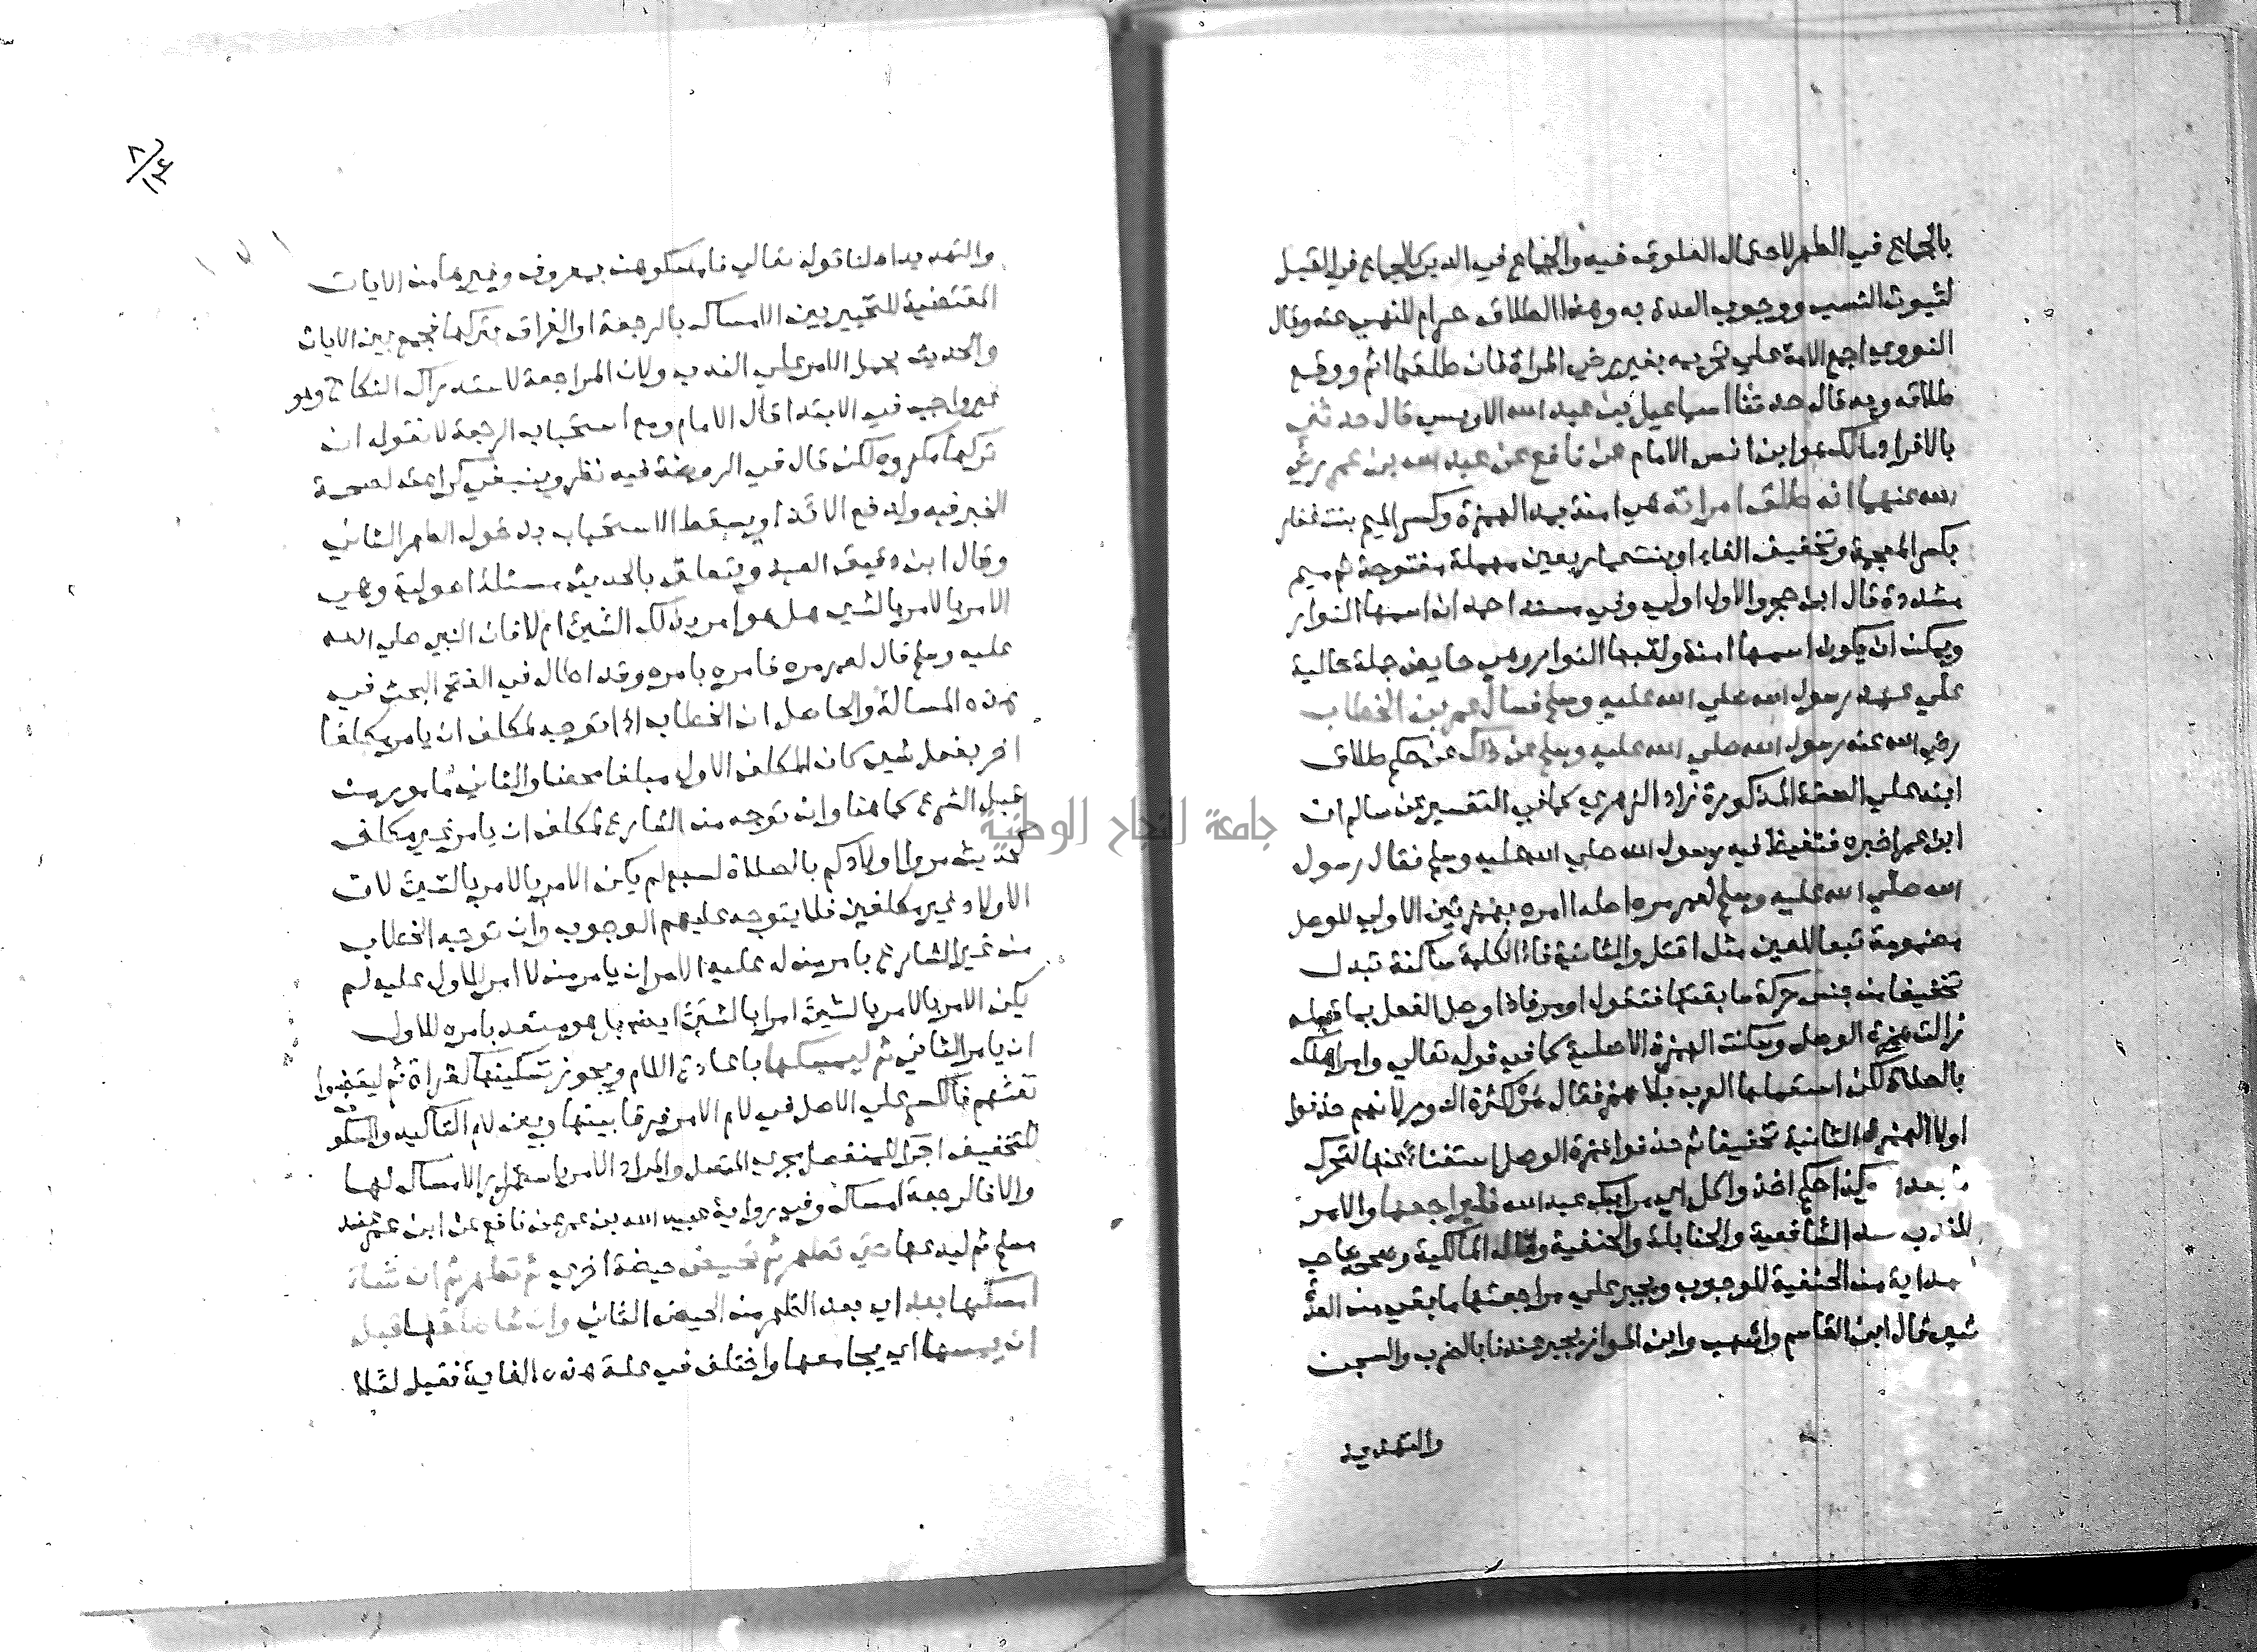 بالجماع في الطهر لاحتمال العلوق فيه والجماع في الدبر كالجماع في القبل
لثبوت النسب ووجوب العدة به وهذا الطلاق حرام للنهي عنه وقال
النووي اجمع الامة علي تحريمه بغير رضي المراة فان طلقها اثم ووقع
طلاقه وبه قال حدثنا اسماعيل بن عبد الله الاويسي قال حدثني
بالافراد مالك هو ابن انس الامام عن نافع عن عبد الله بن عمر رضي
الله عنهما انه طلق امراته هي امنة بمد الهمزة وكسر الميم بنت غفار
بكسر المعجمة وتخفيف الفاء او بنت عمار بعين مهملة مفتوحة ثم ميم
مشددة قال ابن حجر والاول اولي وفي مسند احمد ان اسمها النوار
ويمكن ان يكون اسمها امنة ولقبها النوار وهي حايض جملة حالية
علي عهد رسول الله صلي الله عليه وسلم فسال عمر بن الخطاب
رضي الله عنه رسول الله صلي الله عليه وسلم عن ذلك عن حكم طلاق
ابنه علي الصفة المذكورة زاد الزهري كما في التفسير عن سالم ان
ابن عمر اخبره فتغيظ فيه رسول الله صلي الله عليه وسلم فقال رسول
الله صلي الله عليه وسلم لعمر مره اصله اامره بهمزتين الاولي للوصل
مضمومة تبعا للعين مثل اقتل والثانية فاء الكلمة ساكنة تبدل
تخفيفا من جنس حركة سابقتها فتقول اومر فاذا وصل الفعل بما قبله
زالت همزة الوصل وسكنت الهمزة الاصلية كما في قوله تعالي وامر اهلك
بالصلاة لكن استعملها العرب بلا همز فقال مر لكثرة الدور لانهم حذفوا
اولا الهمزة الثانية تخفيفا ثم حذفوا همزة الوصل استغناء عنها لتحرك
ما بعدها وكذا حكم اخذ واكل اي مر ابنك عبد الله فليراجعها والامر
للندب عند الشافعية والحنابلة والحنفية وقال المالكية وصححه صاحب
الهداية من الحنفية للوجوب ويجبر علي مراجعتها ما بقي من العدة
شي قال ابن القاسم واشهب وابن المواز يجبر عندنا بالضرب والسجن
والتهديد
والتهديد اه لنا قوله تعالي فامسكوهن بمعروف وغيرها من الايات
المقتضية للتخيير بين الامساك بالرجعة او الفراق بتركها فجمع بين الايات
والحديث بحمل الامر علي الندب ولان المراجعة لاستدراك النكاح وهو
غير واجب في الابتدا قال الامام ومع استحباب الرجعة لا نقول ان
تركها مكروه لكن قال في الروضة فيه نظر وينبغي كراهته لصحة
الخبر فيه ولدفع الايذاء ويسقط الاستحباب بدخول الطهر الثاني
وقال ابن دقيق العيد ويتعلق بالحديث مسئلة اصولية وهي
الامر بالامر بالشي هل هو امر بذلك الشيئ ام لا فان النبي صلي الله
عليه وسلم قال لعمر مره فامره بامره وقد اطال في الفتح البحث في
هذه المسالة والحاصل ان الخطاب اذا توجه لمكلف ان يامر مكلفا
اخر بفعل شي كان المكلف الاول مبلغا محضا والثاني مامور من
قبل الشرع كما هنا وان توجه من الشارع لمكلف ان يامر غير مكلف
كحديث مروا اولادكم بالصلاة لسبع لم يكن الامر بالامر بالشيئ لان
الاولاد غير مكلفين فلا يتوجه عليهم الوجوب وان توجه الخطاب
من غير الشارع بامر من له عليه الامر ان يامر من لا امر للاول عليه لم
يكن الامر بالامر بالشيئ امرا بالشيئ ايضا بل هو متعد بامره للاول
ان يامر الثاني ثم ليمسكها باعادة اللام ويجوز تسكينها كقراة ثم ليقضوا
تفثهم فالكسر علي الاصل في لام الامر فرقا بينها وبين لام التاكيد والسكون
للتخفيف اجراء للمنفصل مجري المتصل والمراد الامر باستمرار الامساك لها
والا فالرجعة امساك وفي رواية عبيد الله بن عمر عن نافع عن ابن عمر عند
مسلم ثم ليدعها حتي تطهر ثم تحيض حيضة اخري ثم تطهر ثم ان شاء
امسكها بعد اي بعد الطهر من الحيض الثاني وان شا طلقها قبل
ان يمسها اي يجامعها واختلف في علة هذه الغاية فقيل لئلا
جامعة النجاح الوطنية